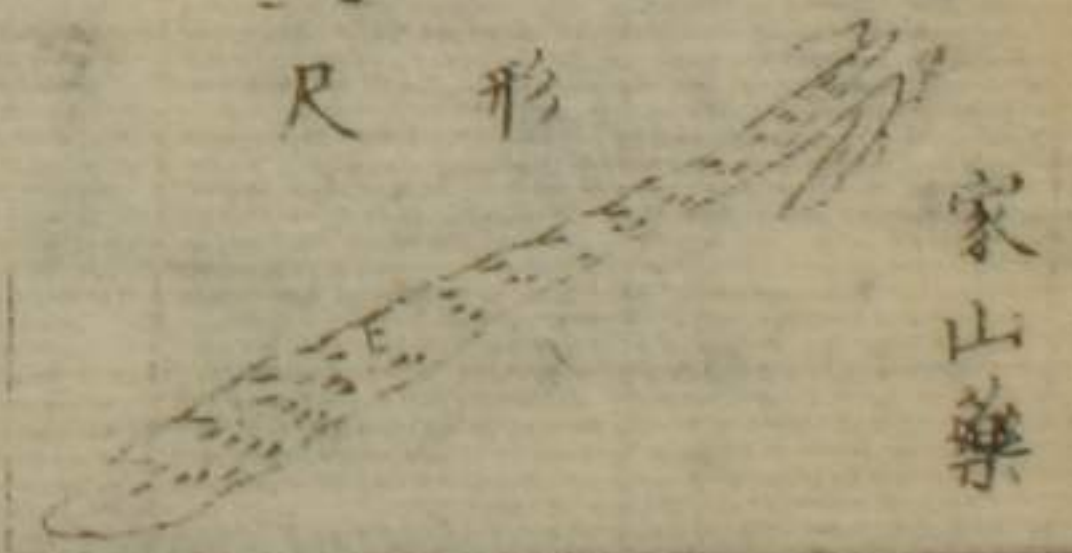 家山藥
形
尺